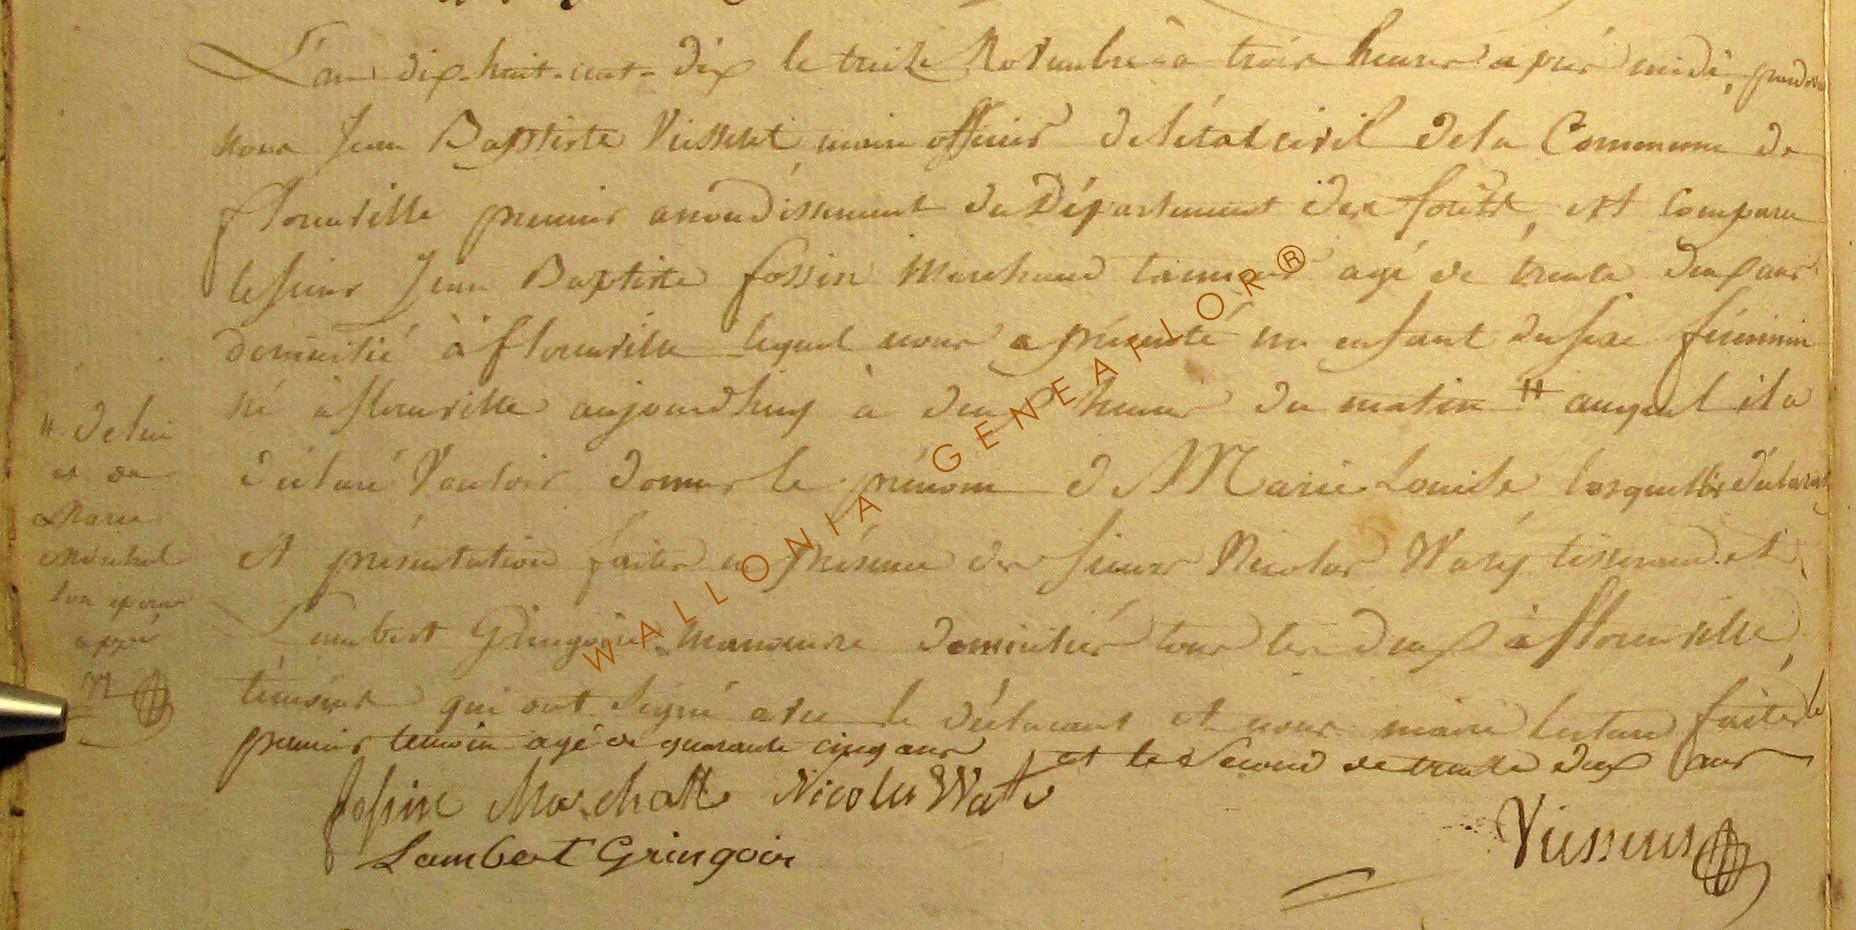 L'an dix-huit-cent-dix le treize Novembre à trois heures après midi, pardevant
nous Jean Baptiste maire officier de l'état civil de la Commune de
florenville premier arrondissement du Département des forêts, est comparu
le sieur Jean Baptiste fossin Marchand tanneur agé de trente deux ans
domicilié à florenville lequel nous a présenté un enfant du sexe féminin
né à florenville aujourd'huy à deux heures du matin # auquel il a
déclaré Vouloir donner le prénom de Marie Louise lesquelles déclaration
et présentation faites en présence des sieurs Nicolas tisserand et
Lambert Gringoire manœuvre domiciliés tous les deux à florenville,
témoins qui ont signé avec le déclarant et nous maire lecture faite le
premier temoin agé de quarante cinq ans et le Second de trente deux ans
# de lui
et de
Marie
son épouse
fossin Nicolas
Lambert Gringoir
WALLONIA GENEAFLOR®